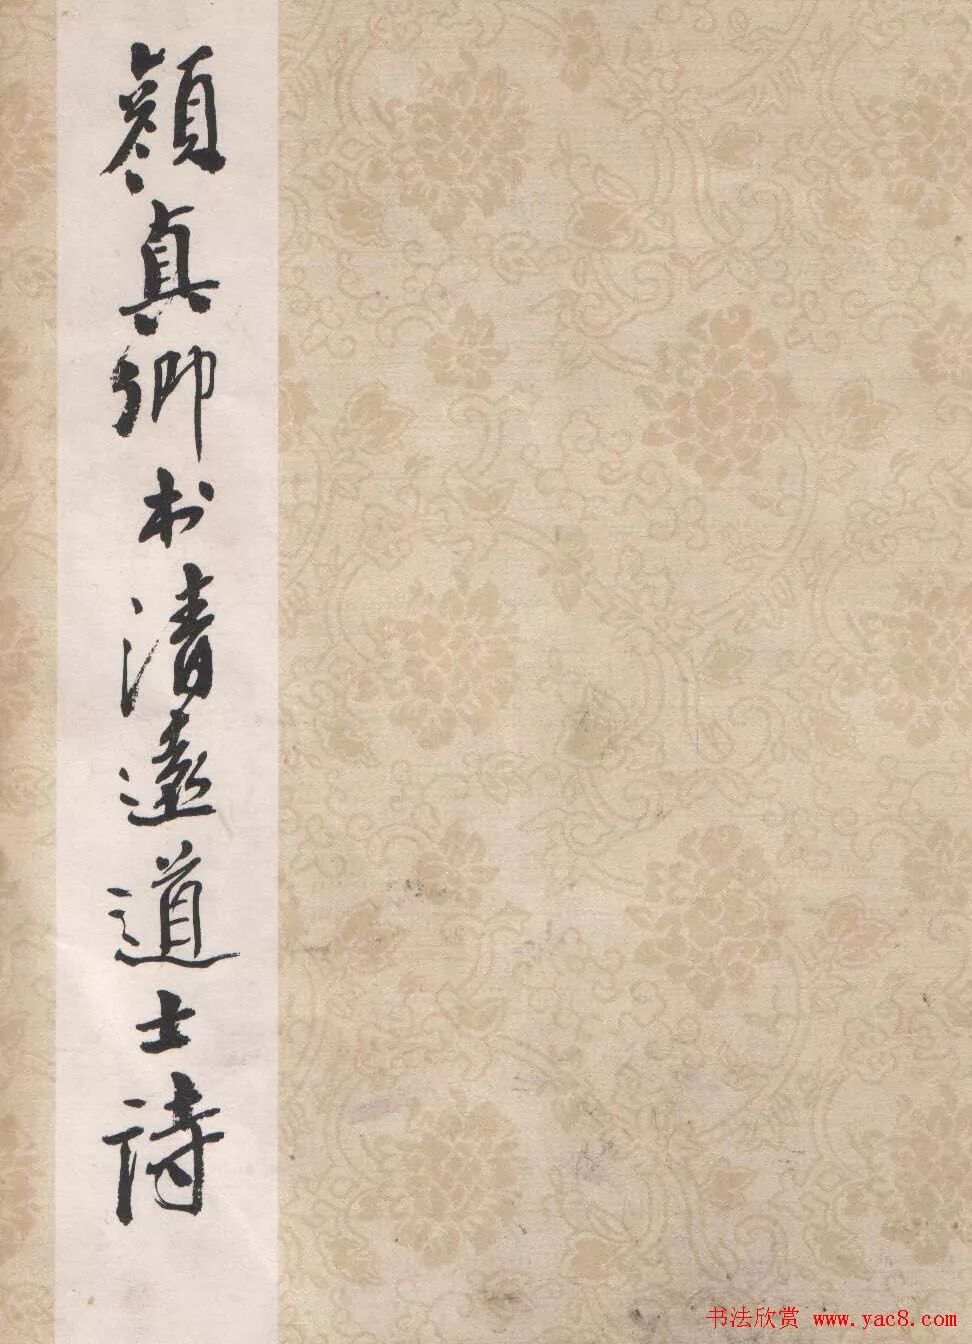 颜真卿书清远道士詩
书法欣赏 www.yac8.com